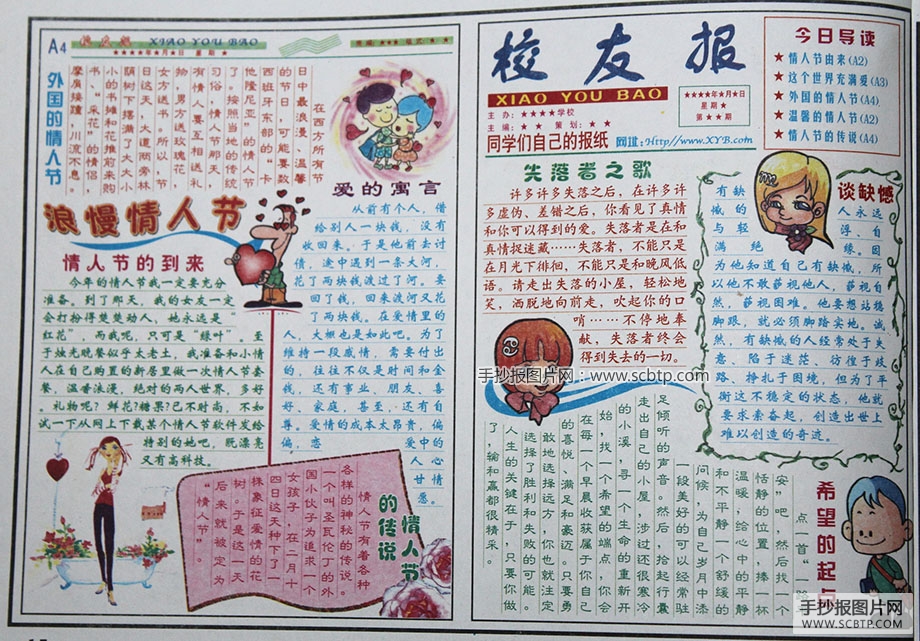 A4
校友报
XIAO YOU BAO
★★★★年★月★日 星期★
责编：★★★ 版式：★ ★
外国的情人节
在西方所有节
日中最浪漫、温馨
的节日，可能要数
西班牙东部的“卡
他隆尼亚”的情人节
了。按照当地的传统
习俗，情人节那天，
有情人要互相送礼
物，男方送玫瑰花，
女方送书。所以，节
日这天，大道两旁林
阴树下摆满了大大小
小的书摊和花摊前来购
书、采花”的情侣，
摩肩接踵，川流不息。
爱的寓言
从前有个人，借
给别人一块钱，没有
收回来。于是他前去讨
债，途中遇到一条大河，
花了两块钱渡过了河。要
回了钱，回来渡河又花
了两块钱。在爱情里的
人，大概也是如此吧。为了
维持一段感情，需要付出
的，往往不仅是时间和金
钱，还有事业、朋友、喜
好、家庭，甚至，还有自
尊。爱情的成本太昂贵，偏
偏，恋爱中的
人心
甘情
愿。
浪慢情人节
情人节的到来
今年的情人节我一定要充分
准备。到了那天，我的女友一定
会打扮得楚楚动人，她永远是“
红花”，而我呢，只可是“绿叶”。至
于烛光晚餐似乎太老土，我准备和小情
人在自己购置的新居里做一次情人节套
餐。温馨浪漫，绝对的两人世界，多好
。礼物呢？鲜花？糖果？已不时高，不如
试一下从网上下载某个情人节软件发给
特别的她吧，既漂亮
又有高科技。
情人节的传说
情人节有着各种
各样的神秘的传说。
一个叫圣瓦伦丁的外
国小伙子为追求一个
女孩子，在二月十
四日这天种下了一
棵象征爱情的花
树。于是这一天
后来就被定为
“情人节”。
校友报
XIAO YOU BAO
主办：★★★★学校
主编：★ ★ 策划：★ ★
★★★★年★月★日
星期★
第★★期
同学们自己的报纸 网址：Http://www.XYB.com
今日导读
★ 情人节由来(A2)
★ 这个世界充满爱(A3)
★ 外国的情人节(A4)
★ 温馨的情人节(A2)
★ 情人节的传说(A4)
失落者之歌
许多许多失落之后，在许多许
多虚伪、差错之后，你看见了真情
和你可以得到的爱。失落者是在和
真情捉迷藏……失落者，不能只是
在月光下徘徊，不能只是和晚风低
语。请走出失落的小屋，轻松地
笑，洒脱地向前走，吹起你的口
哨……不停地奉
献，失落者终会
得到失去的一切。
谈缺憾
有缺憾的人永远
与轻浮、自
满绝缘。因
为他知道自己有缺憾，所
以他不敢藐视他人，藐视自
然，藐视困难。他要想站稳
脚跟，就必须脚踏实地。诚
然，有缺憾的人经常处于失
意，陷于迷茫，彷徨于歧
路、挣扎于困境，但为了平
衡这不稳定的状态，他就
要求索奋起，创造出世上
难以创造的奇迹。
希望的起点
点一首“一路平
安”吧，然后找一个
恬静的位置，捧一杯
温暖，给心中的平静
和不平静一个舒缓的
问候，为自己岁月中漆
一段美好的可以经常驻
足倾听的声音。然后，拾起行囊
走出自己的小屋，涉过还很寒冷
的小溪，寻一个生命的重新开
始，找一个希望的端点，你会
在每一个早晨收获属于你自己
的喜悦、满足和豪迈。只要勇
敢地选择远方，你也就注定
选择了胜利和失败的可能，
人生的关键在于，只要你做
了，输和赢都很精采。
手抄报图片网：www.scbtp.com
手抄报图片网
WWW.SCBTP.COM